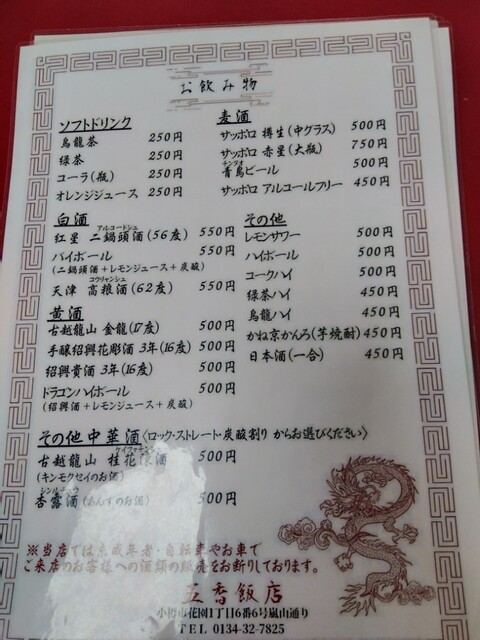 お飲み物
ソフトドリンク
烏龍茶 250円
緑茶 250円
コーラ(瓶) 250円
オレンジジュース 250円
麦酒
サッポロ 樽生(中グラス) 500円
サッポロ 赤星(大瓶) 750円
チンタオ
青島ビール 500円
サッポロ アルコールフリー 450円
白酒
アルコードシュ
紅星 二鍋頭酒(56度) 550円
バイボール 550円
(二鍋頭酒+レモンジュース+炭酸)
コウリャンシュ
天津 高粮酒(62度) 550円
黄酒
古越龍山 金龍(17度) 500円
手醸紹興花彫酒 3年(16度) 500円
紹興貴酒 3年(16度) 500円
ドラゴンハイボール 500円
(紹興酒+レモンジュース+炭酸)
その他
レモンサワー 500円
ハイボール 500円
コークハイ 500円
緑茶ハイ 450円
烏龍ハイ 450円
かね京かんろ(芋焼酎) 450円
日本酒(一合) 450円
その他中華酒〈ロック・ストレート・炭酸割り からお選びください〉
古越龍山 桂花 酒 500円
(キンモクセイのお酒)
杏露酒(あんずのお酒) 500円
※当店では未成年者・自転車やお車で
ご来店のお客様への酒類の販売をお断りしております。
五香飯店
小樽市花園1丁目6番6号嵐山通り
TEL 0134-32-7825